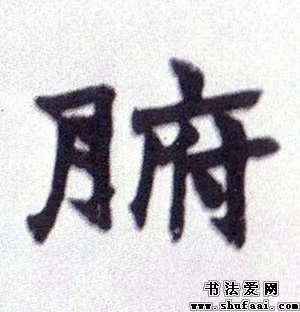 腑
书法爱网
www.shufaai.com